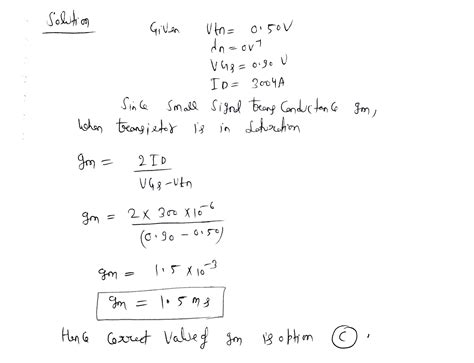 Solution
Given Vtn = 0.50V
λn = 0V⁻¹
VGS = 0.90 V
ID = 300μA
Since small signal transconductance gm,
when transistor is in saturation
gm = 2ID / VGS-Vtn
gm = 2 × 300 × 10⁻⁶ / (0.90 - 0.50)
gm = 1.5 × 10⁻³
gm = 1.5 ms
Hence correct value of gm is option C.